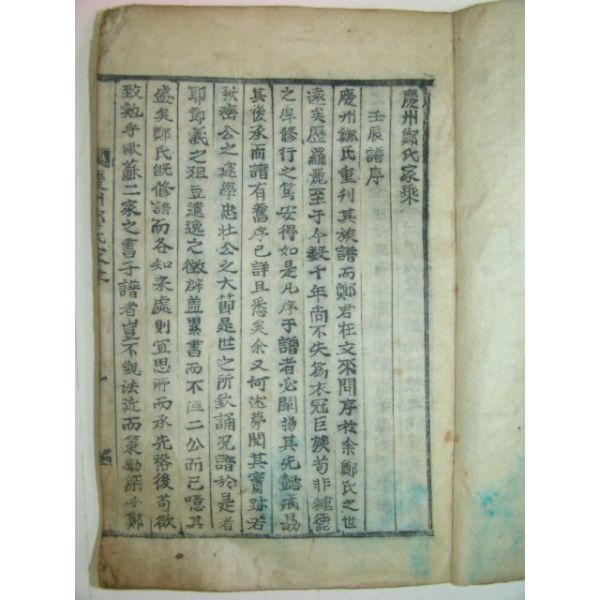 慶州鄭氏家乘
壬辰譜序
慶州鄭氏重刊其族譜而鄭君枉文來問序於余鄭氏之世
遠矣歷羅麗至于今數千年尚不失爲衣冠巨族苟非種德
之厚修行之篤安得如是凡序于譜者必闡揚其先懿
其後承而譜有舊序已詳且悉矣余又何述夢聞其實跡若
文公之學忠壯公之大節是世之所欽誦況譜於是者
耶節義之俎豆遺逸之徵辟盖累書而不二公而已噫其
盛矣鄭氏旣修譜而各知來處則宜思所而承先裕後苟欲
致勉乎歐蘇二家之書于譜者豈不觀法近而策勵深乎鄭
慶州鄭氏